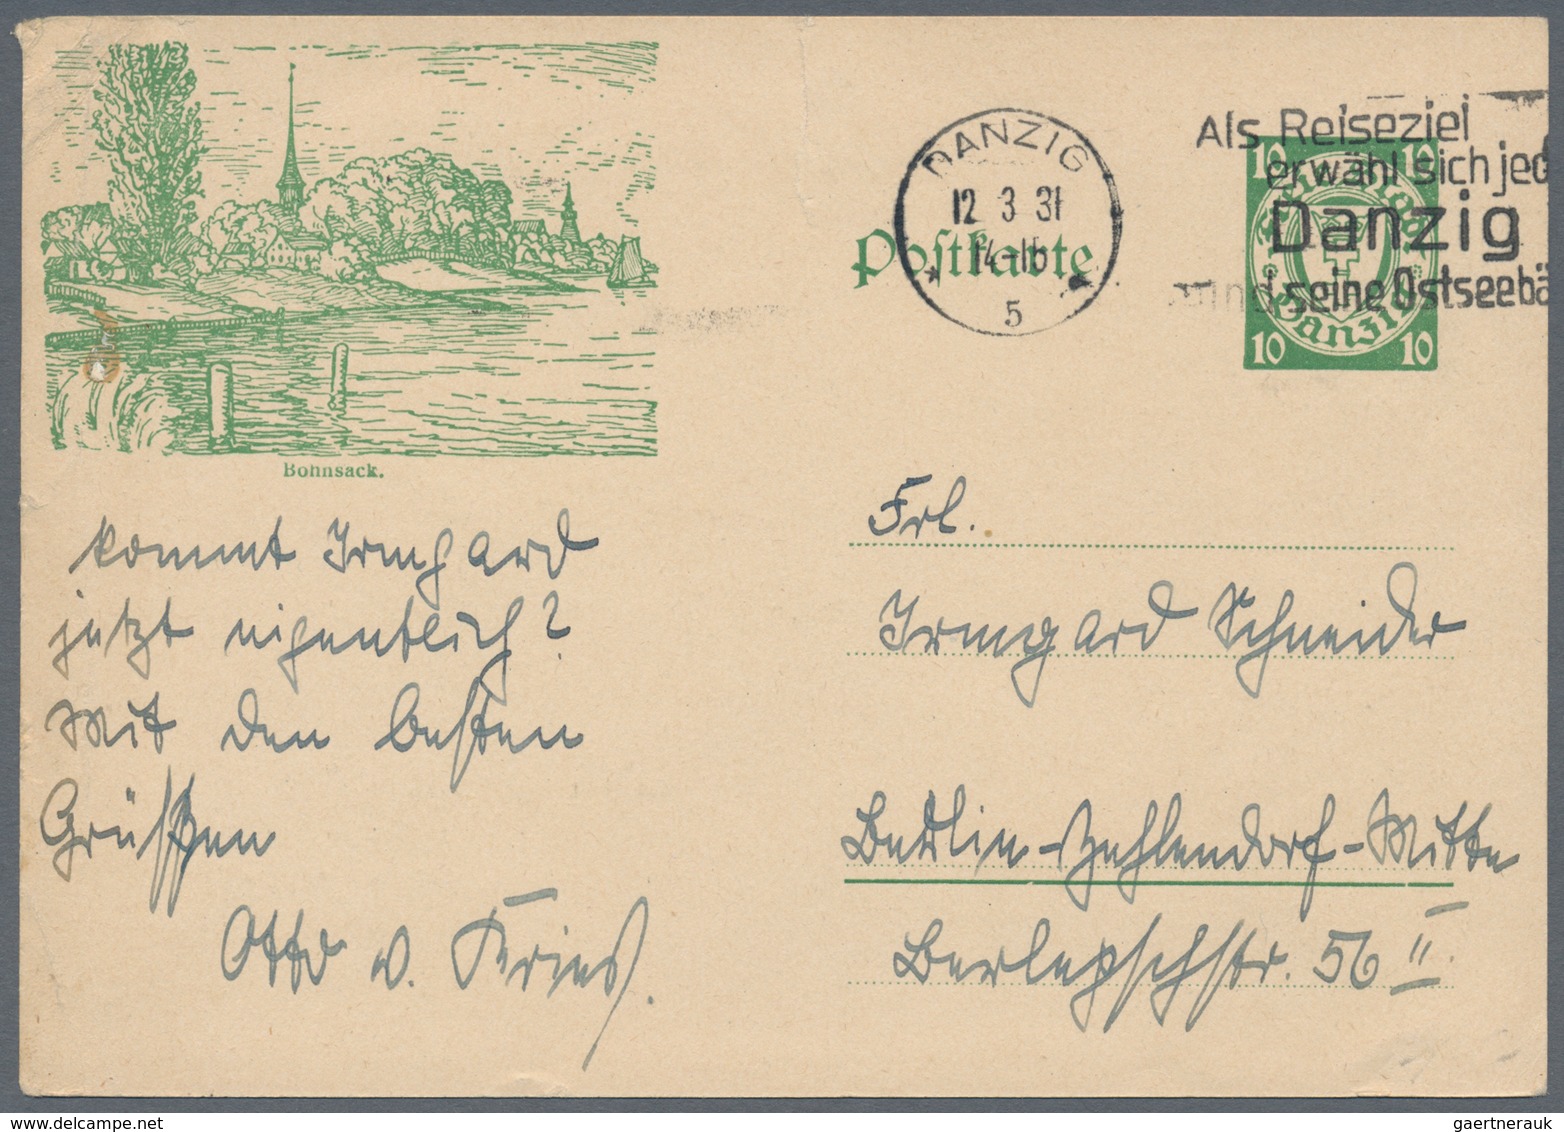 Bohnsack.
kommt Irmgard
jetzt eigentlich?
Mit den besten
Grüßen
Otto v. Kries.
Postkarte
DANZIG
12 3 31
14-15
* *
5
Als Reiseziel
erwähl sich jed
Danzig
und seine Ostseebä
10 10
Danzig
10 10
Frl.
Irmgard Schneider
Berlin-Zehlendorf-Mitte
Berlepschstr. 56 II.
gaertnerauk@yahoo.com